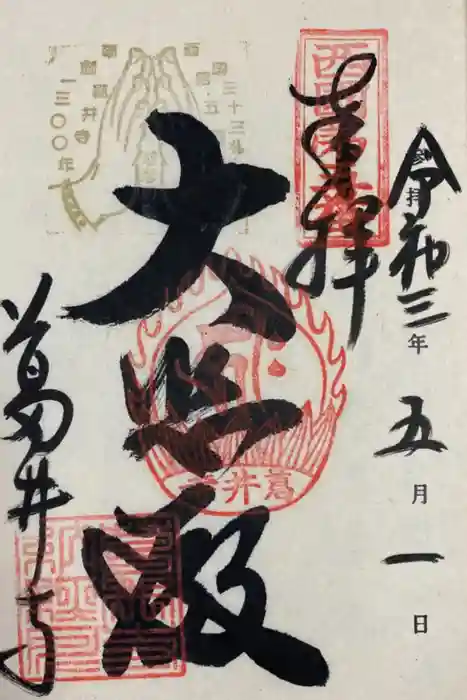 令和三年五月一日
参拝
奉拝
西国第五番
大悲殿
葛井寺
葛井寺
西国三十三所
第五番
葛井寺
一三〇〇年